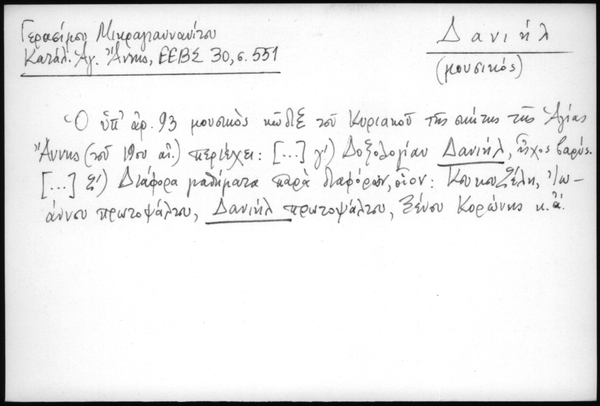 Γερασίμου Μικραγιαννανίτου
Κατάλ. Ἁγ. Ἄννης, ΕΕΒΣ 30, σ. 551
Δανιήλ
(μουσικός)
Ὁ ὑπ' ἀρ. 93 μουσικὸς κῶδιξ τοῦ Κυριακοῦ τῆς σκήτης τῆς Ἁγίας
Ἄννης (τοῦ 19ου αἰ.) περιέχει: [...] γ') Δοξολογίαν Δανιήλ, ἦχος βαρύς.
[...] Διάφορα μαθήματα παρὰ διαφόρων, οἷον: Κουκουζέλη, Ἰω-
άννου πρωτοψάλτου, Δανιήλ πρωτοψάλτου, Ξένου Κορώνης κ.ἄ.